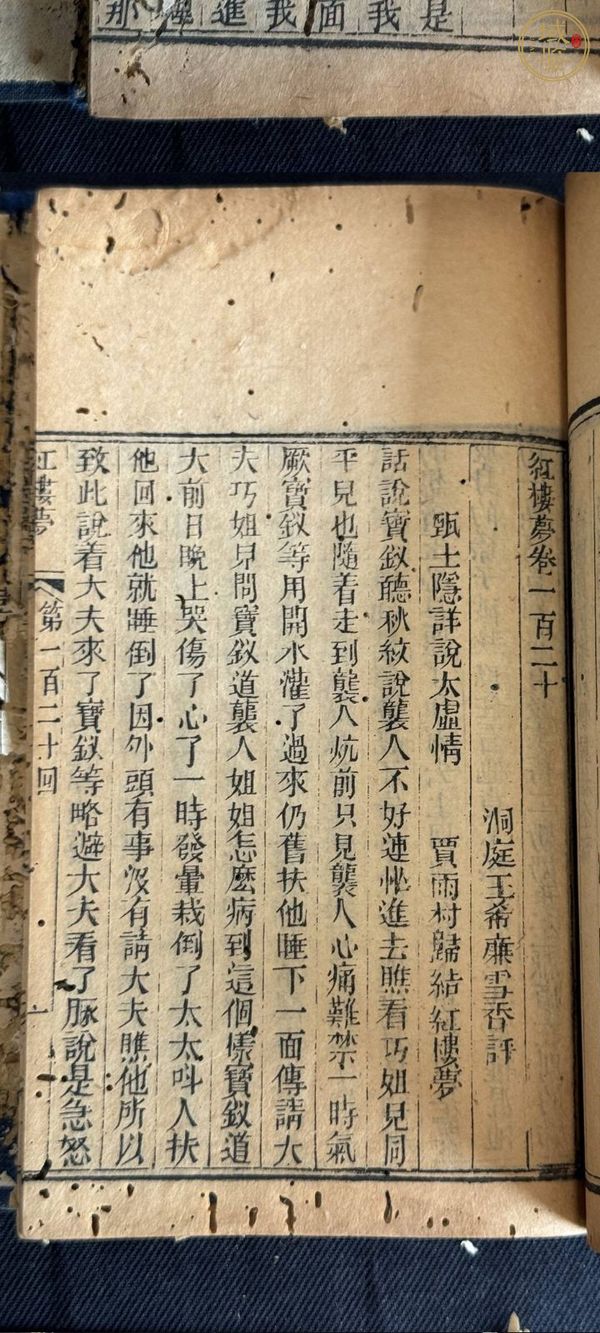 那裡進我面我是
紅樓夢卷一百二十
洞庭王希廉雪香評
甄士隱詳說太虛情　賈雨村歸結紅樓夢
話說寶釵聽秋紋說襲人不好連忙進去瞧看巧姐兒同
平兒也隨着走到襲人炕前只見襲人心痛難禁一時氣
厥寶釵等用開水灌了過來仍舊扶他睡下一面傳請大
夫巧姐兒問寶釵道襲人姐姐怎麽病到這個樣寶釵道
大前日晚上哭傷了心了一時發暈栽倒了太太呌人扶
他回來他就睡倒了因外頭有事沒有請大夫瞧他所以
致此說着大夫來了寶釵等略避大夫看了脉說是急怒
紅樓夢　第一百二十回　一